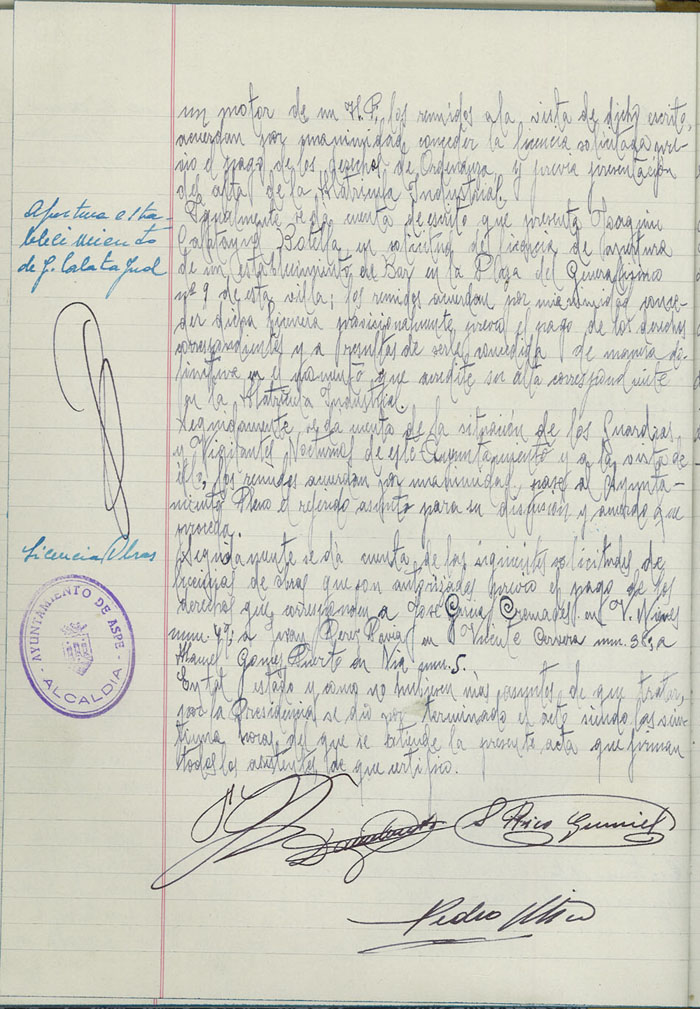 un motor de un H.P. los reunidos a la vista de dicho escrito,
acuerdan por unanimidad conceder la licencia solicitada pre-
vio el pago de los derechos de Ordenanza y previa presentación
del alta de la Matrícula Industrial.
Apertura esta-
bleci miento
de J. Calatayud
Igualmente se da cuenta de escrito que presenta Joaquin
Calatayud Botella en solicitud de licencia de apertura
de un establecimiento de Bar en la Plaza del Generalísimo
nº 9 de esta villa; los reunidos acuerdan por unanimidad conce-
der dicha licencia provisionalmente, previo el pago de los derechos
correspondientes y a resultas de serle concedida de manera de-
finitiva en el momento que acredite ser alta correspondiente
en la Matrícula Industrial.
Seguidamente se da cuenta de la situación de los Guardias
y Vigilantes Nocturnos de este Ayuntamiento y a la vista de
ello, los reunidos acuerdan por unanimidad, pase al Ayunta-
miento Pleno el referido asunto para su discusión y acuerdo que
proceda.
Licencia Obras
Seguidamente se da cuenta de las siguientes solicitudes de
licencias de obras que son autorizadas previo el pago de los
derechos que correspondan a José García Cremades en V. Nieves
num. 47; a Juan Perez en Vicente Cervera num. 36; a
Manuel Gomez Puerto en Via num. 5.
En tal estado y como no hubiesen mas asuntos de que tratar,
por la Presidencia se dió por terminado el acto siendo las
horas de que se extiende la presente acta que firman
todos los asistentes de que certifico.
AYUNTAMIENTO DE ASPE
ALCALDIA
S Rico
Pedro